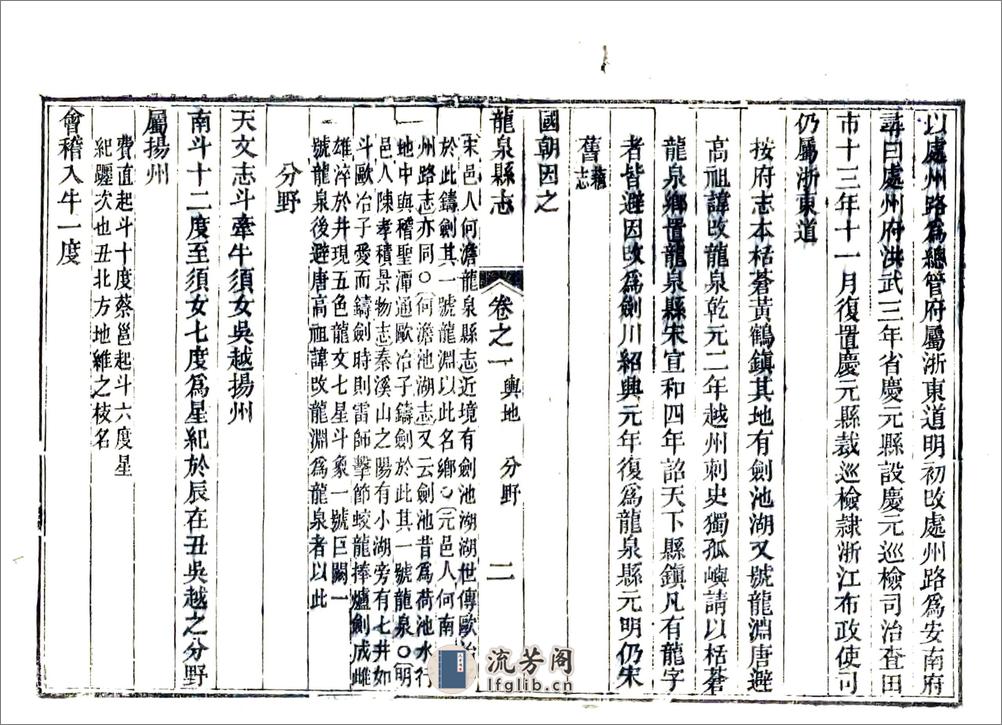 以處州路爲總管府屬浙東道明初改處州路爲安南府
尋曰處州府洪武三年省慶元縣設慶元巡檢司治查田
市十三年十一月復置慶元縣裁巡檢隸浙江布政使司
仍屬浙東道
按府志本栝蒼黃鶴鎮其地有劍池湖又號龍淵唐避
高祖諱改龍泉乾元二年越州刺史獨孤嶼請以栝蒼
龍泉鄉置龍泉縣宋宣和四年詔天下縣鎮凡有龍字
者皆避因改爲劍川紹興元年復爲龍泉縣元明仍宋
舊
國朝因之
龍泉縣志 卷之一 輿地 分野 二
宋邑人何澹龍泉縣志近境有劍池湖湖世傳歐冶
於此鑄劍其一號龍淵以此名鄉○元邑人何南
州路志亦同○何澹池湖志又云劍池昔爲荷池水行
地中與稽聖潭通歐冶子鑄劍於此其一號龍泉○明
邑人陳孝積景物志秦溪山之陽有小湖旁有七井如
斗歐冶子愛而鑄劍時則雷師擊節蛟龍捧爐劍成雌
雄淬於井現五色龍文七星斗象一號巨闕一
號龍泉後避唐高祖諱改龍淵爲龍泉者以此
分野
天文志斗牽牛須女吳越揚州
南斗十二度至須女七度爲星紀於辰在丑吳越之分野
屬揚州
費直起斗十度蔡邕起斗六度星
紀躔次也丑北方地維之枝名
會稽入牛一度
流芳阁
lfglib.cn